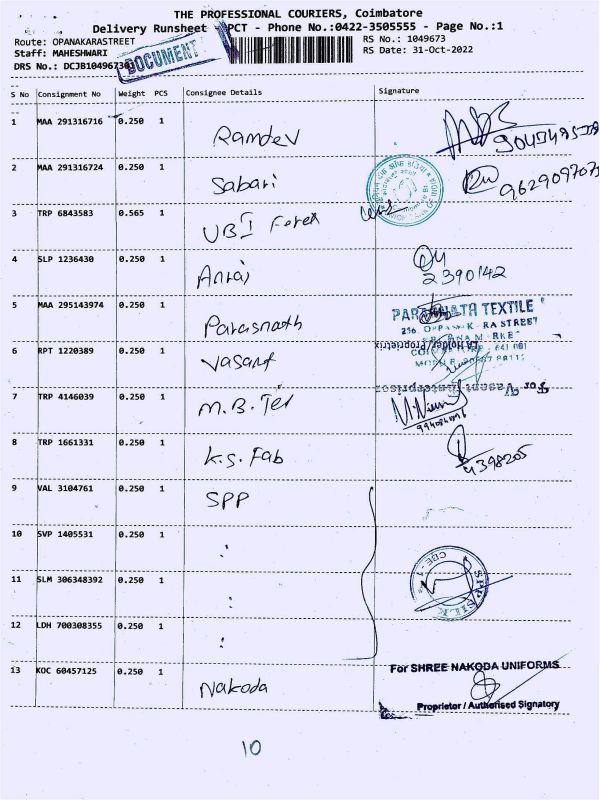 THE PROFESSIONAL COURIERS, Coimbatore
Delivery Runsheet PCT - Phone No.:0422-3505555 - Page No.:1
Route: OPANAKARASTREET
RS No.: 1049673
Staff: MAHESHWARI
RS Date: 31-Oct-2022
DRS No.: DCJB104967301
DOCUMENT
S No Consignment No Weight PCS Consignee Details Signature
1 MAA 291316716 0.250 1 Ramdev
2 MAA 291316724 0.250 1 Sabari 9629097071
3 TRP 6843583 0.565 1 UBI Forex
4 SLP 1236430 0.250 1 Anraj 2390142
5 MAA 295143974 0.250 1 Parasnath
PARASNATH TEXTILE
6 RPT 1220389 0.250 1 Vasant
For Vasant Enterprises
7 TRP 4146039 0.250 1 M.B. Tex
8 TRP 1661331 0.250 1 K.S. Fab 4398205
9 VAL 3104761 0.250 1 SPP
10 SVP 1405531 0.250 1 "
11 SLM 306348392 0.250 1 :
SPP SILK
CBE - 1
12 LDH 700308355 0.250 1 :
13 KOC 60457125 0.250 1 Nakoda
For SHREE NAKODA UNIFORMS
Proprietor / Authorised Signatory
10